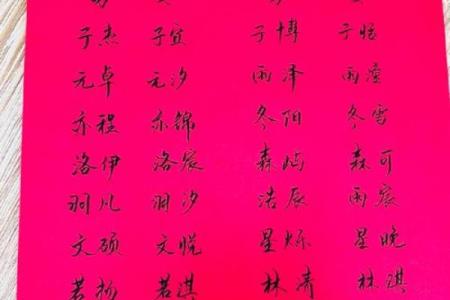 子杰 子宜 子博 子临
元卓 元汐 雨泽 雨潼
亦程 亦锦 冬阳 冬雪
洛伊 洛宸 森屿 森可
羽凡 羽汐 浩辰 雨宸
文硕 文悦 星烁 星晚
若扬 若琪 林青 林琪